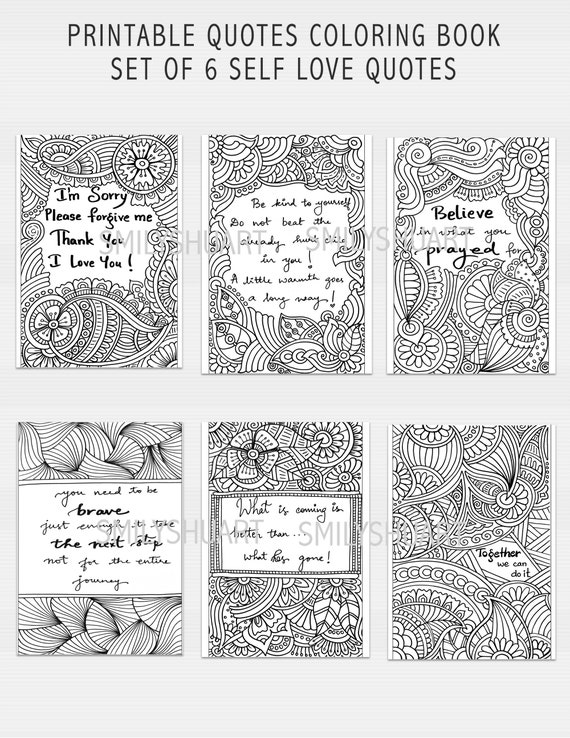 PRINTABLE QUOTES COLORING BOOK
SET OF 6 SELF LOVE QUOTES
I'm Sorry
Please forgive me
Thank You
I Love You!
Be kind to yourself
Do not beat the
already hurt child
in you!
A little warmth goes
a long way!
Believe
in what you
prayed for
SMILYSHUART SMILYSHUART
you need to be
brave
just enough to take
the next step
not for the entire
journey
What is coming is
better than...
what has gone!
Together
we can
do it
SMILYSHUART SMILYSHUART